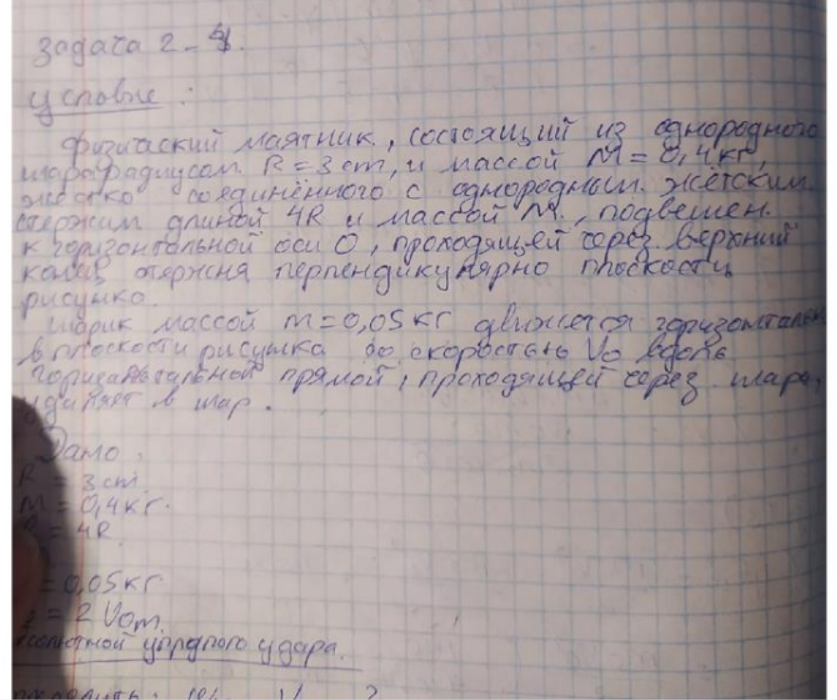 задача 2-4.
условие :
физический маятник, состоящий из однородного
шара радиусом R = 3 cm, и массой M = 0,4 кг,
жёстко соединённого с однородным жётским
стержим длиной 4R и массой M, подвешен
к горизонтальной оси O, проходящей через верхний
конец стержня перпендикулярно плоскости
рисунка.
шарик массой m = 0,05 кг движется горизонтален
в плоскости рисунка со скоростью V0 вдоль
горизантальной прямой, проходящей через шара,
в шар.
Дано
= 3 cm
M = 0,4 кг.
= 4R
= 0,05 кг
= 2 V0m
упругого удара.